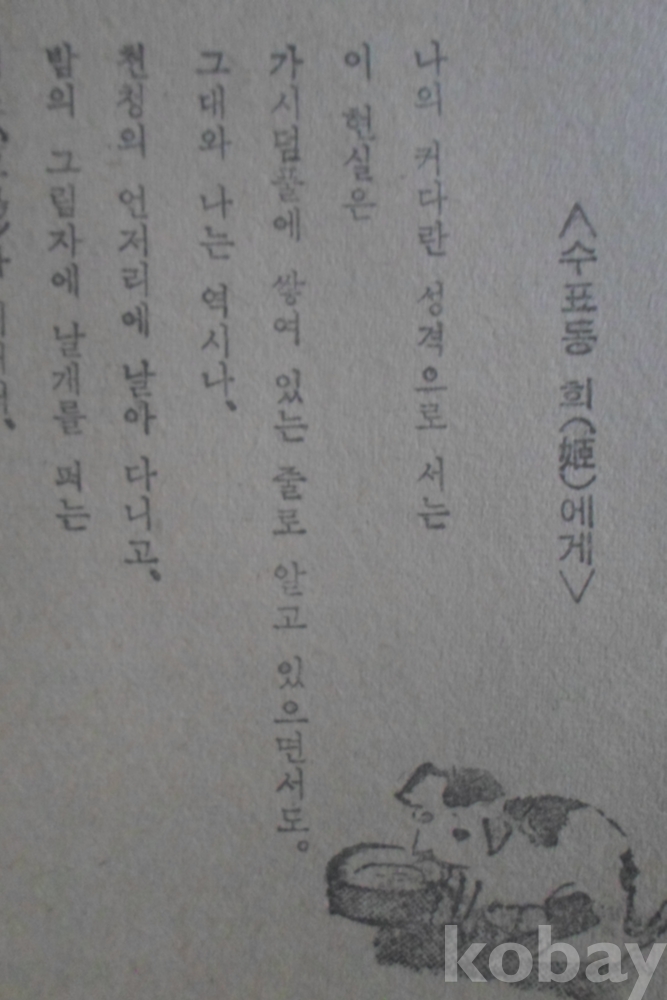 <수표동 희(姬)에게>
나의 커다란 성격으로 서는
이 현실은
가시덤풀에 쌓여 있는 줄로 알고 있으면서도。
그대와 나는 역시나、
천칭의 언저리에 날아 다니고、
밤의 그림자에 날개를 펴는
kobay